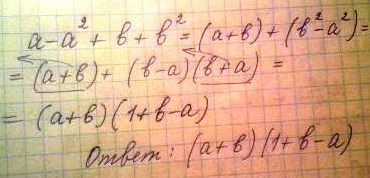 a-a²+b+b²=(a+b)+(b²-a²)=
=(a+b)+(b-a)(b+a)=
=(a+b)(1+b-a)
Ответ: (a+b)(1+b-a)